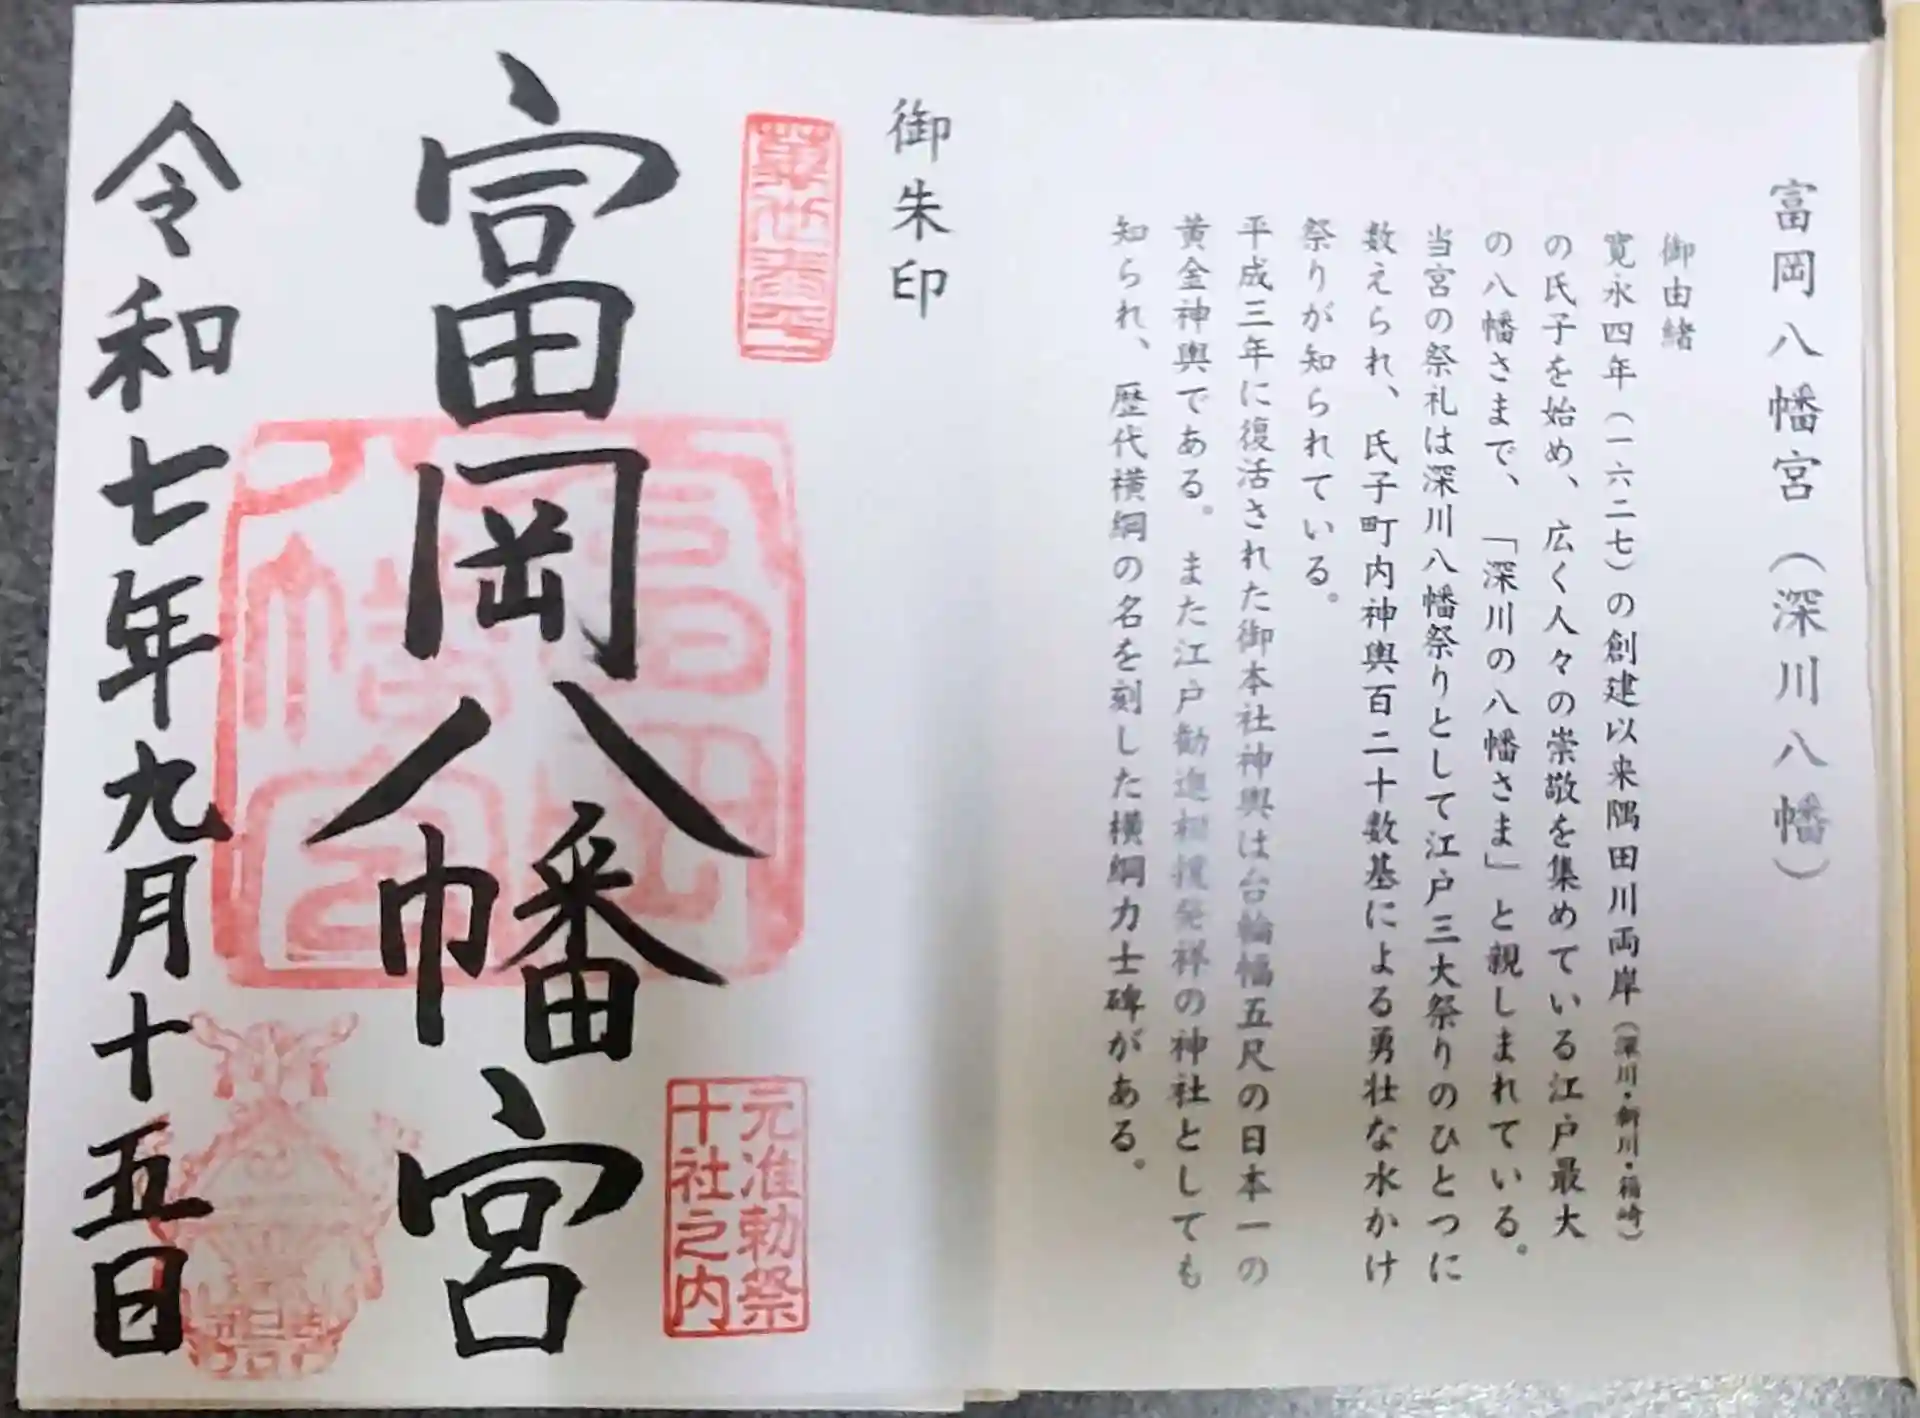 富岡八幡宮（深川八幡）
御由緒
寛永四年（一六二七）の創建以来隅田川両岸（深川・新川・箱崎）
の氏子を始め、広く人々の崇敬を集めている江戸最大
の八幡さまで、「深川の八幡さま」と親しまれている。
当宮の祭礼は深川八幡祭りとして江戸三大祭りのひとつに
数えられ、氏子町内神輿百二十数基による勇壮な水かけ
祭りが知られている。
平成三年に復活された御本社神輿は台輪幅五尺の日本一の
黄金神輿である。また江戸勧進相撲発祥の神社としても
知られ、歴代横綱の名を刻した横綱力士碑がある。
御朱印
元准勅祭
十社之内
富岡八幡宮
令和七年九月十五日